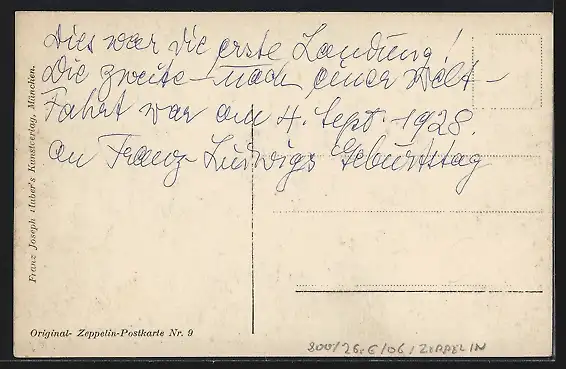 Dies war die erste Landung!
Die zweite – nach einer Welt –
Fahrt war am 4. Sept. 1928.
an Franz Ludwigs Geburtstag
Franz Joseph Huber's Kunstverlag, München.
Original- Zeppelin-Postkarte Nr. 9
800/26.6/06/ZEPPELIN